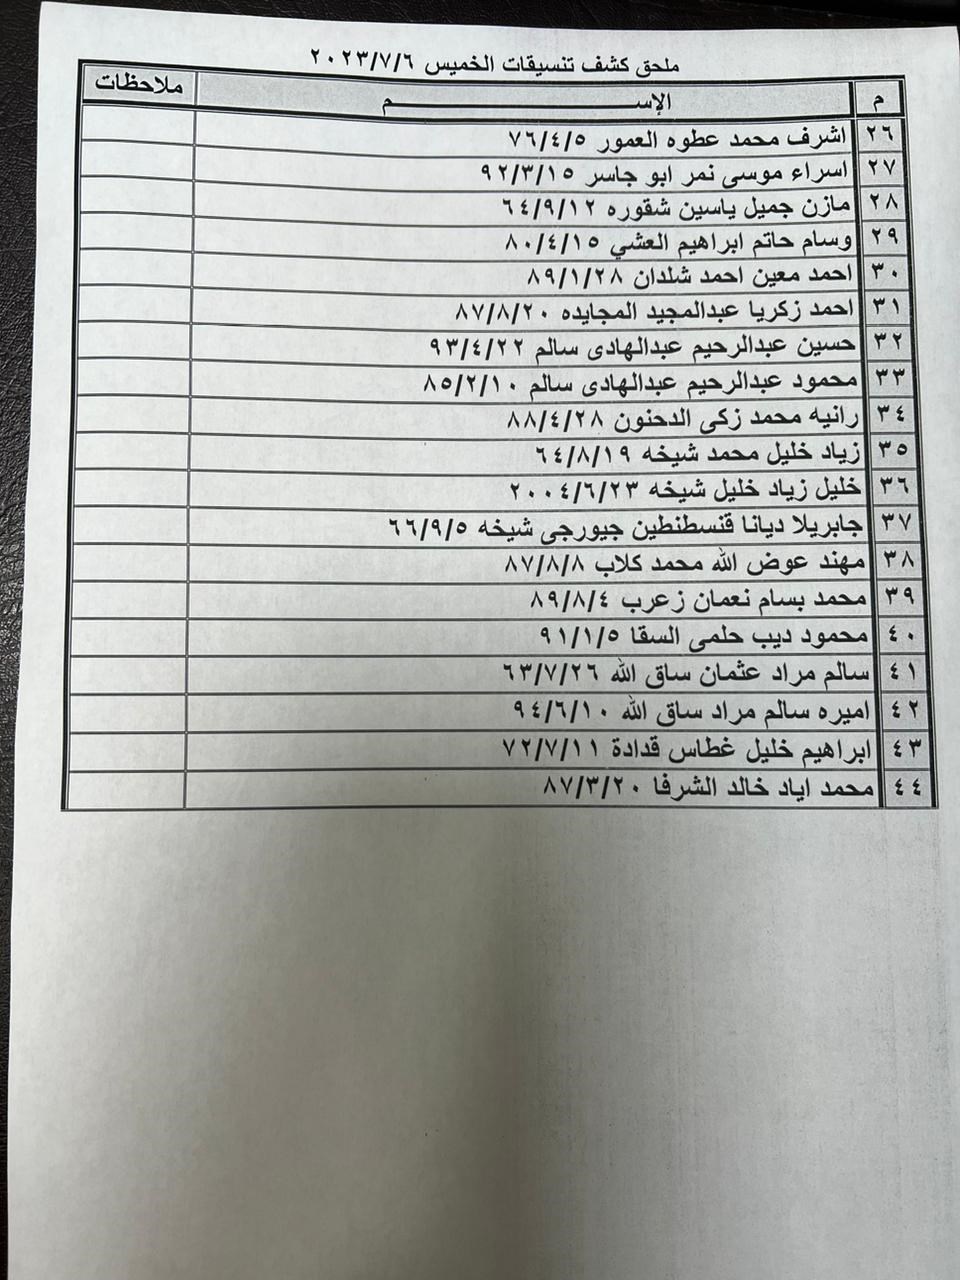 ملحق كشف تنسيقات الخميس ٢٠٢٣/٧/٦
م الإســـــــم ملاحظات
٢٦ اشرف محمد عطوه العمور ٧٦/٤/٥
٢٧ اسراء موسى نمر ابو جاسر ٩٢/٣/١٥
٢٨ مازن جميل ياسين شقوره ٦٤/٩/١٢
٢٩ وسام حاتم ابراهيم العشي ٨٠/٤/١٥
٣٠ احمد معين احمد شلدان ٨٩/١/٢٨
٣١ احمد زكريا عبدالمجيد المجايده ٨٧/٨/٢٠
٣٢ حسين عبدالرحيم عبدالهادى سالم ٩٣/٤/٢٢
٣٣ محمود عبدالرحيم عبدالهادى سالم ٨٥/٢/١٠
٣٤ رانيه محمد زكى الدحنون ٨٨/٤/٢٨
٣٥ زياد خليل محمد شيخه ٦٤/٨/١٩
٣٦ خليل زياد خليل شيخه ٢٠٠٤/٦/٢٣
٣٧ جابريلا ديانا قنسطنطين جيورجى شيخه ٦٦/٩/٥
٣٨ مهند عوض الله محمد كلاب ٨٧/٨/٨
٣٩ محمد بسام نعمان زعرب ٨٩/٨/٤
٤٠ محمود ديب حلمى السقا ٩١/١/٥
٤١ سالم مراد عثمان ساق الله ٦٣/٧/٢٦
٤٢ اميره سالم مراد ساق الله ٩٤/٦/١٠
٤٣ ابراهيم خليل غطاس قدادة ٧٢/٧/١١
٤٤ محمد اياد خالد الشرفا ٨٧/٣/٢٠